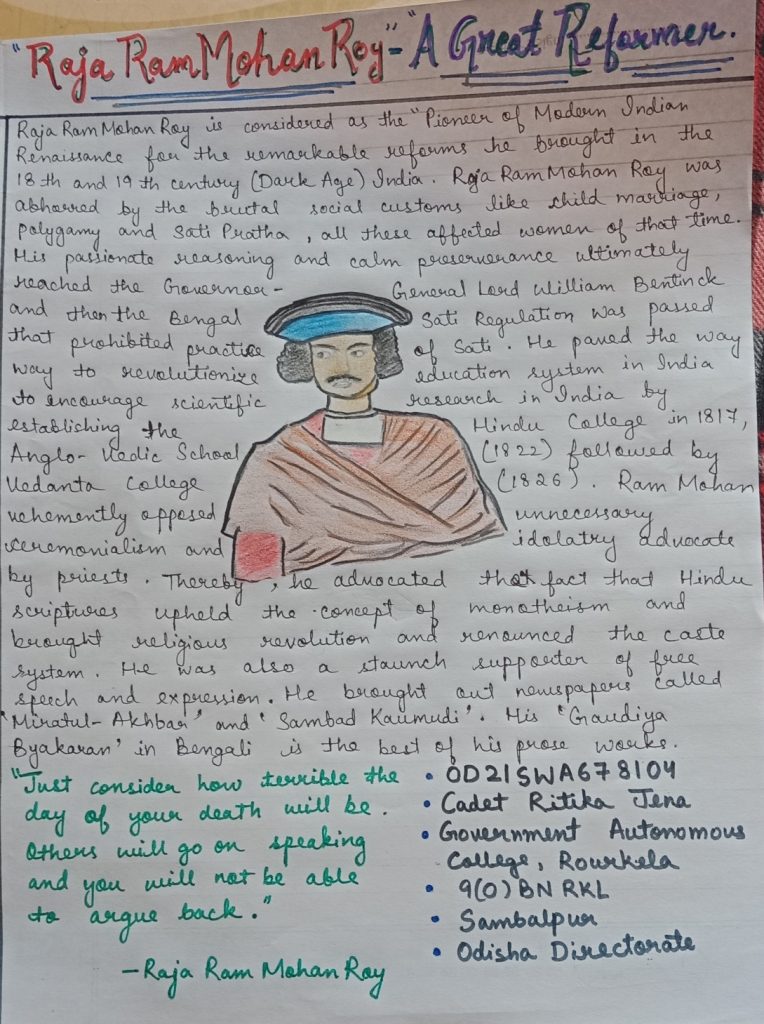 "Raja Ram Mohan Roy" - "A Great Reformer.
Raja Ram Mohan Roy is considered as the "Pioneer of Modern Indian
Renaissance for the remarkable reforms he brought in the
18th and 19th century (Dark Age) India. Raja Ram Mohan Roy was
abhorred by the brutal social customs like child marriage,
polygamy and Sati Pratha, all these affected women of that time.
His passionate reasoning and calm preserverance ultimately
reached the Governor- General Lord William Bentinck
and then the Bengal Sati Regulation was passed
that prohibited practice of Sati. He paved the way
way to revolutionize education system in India
to encourage scientific research in India by
establishing the Hindu College in 1817,
Anglo-Vedic School (1822) followed by
Vedanta College (1826). Ram Mohan
vehemently opposed unnecessary
ceremonialism and idolatry advocate
by priests. Thereby, he advocated that fact that Hindu
scriptures upheld the concept of monotheism and
brought religious revolution and renounced the caste
system. He was also a staunch supporter of free
speech and expression. He brought out newspapers called
'Miratul-Akhbar' and 'Sambad Kaumudi'. His 'Gaudiya
Byakaran' in Bengali is the best of his prose works.
"Just consider how terrible the
day of your death will be.
Others will go on speaking
and you will not be able
to argue back."
-Raja Ram Mohan Roy
• OD21SWA678104
• Cadet Ritika Jena
• Government Autonomous
College, Rourkela
• 9(O) BN RKL
• Sambalpur
• Odisha Directorate